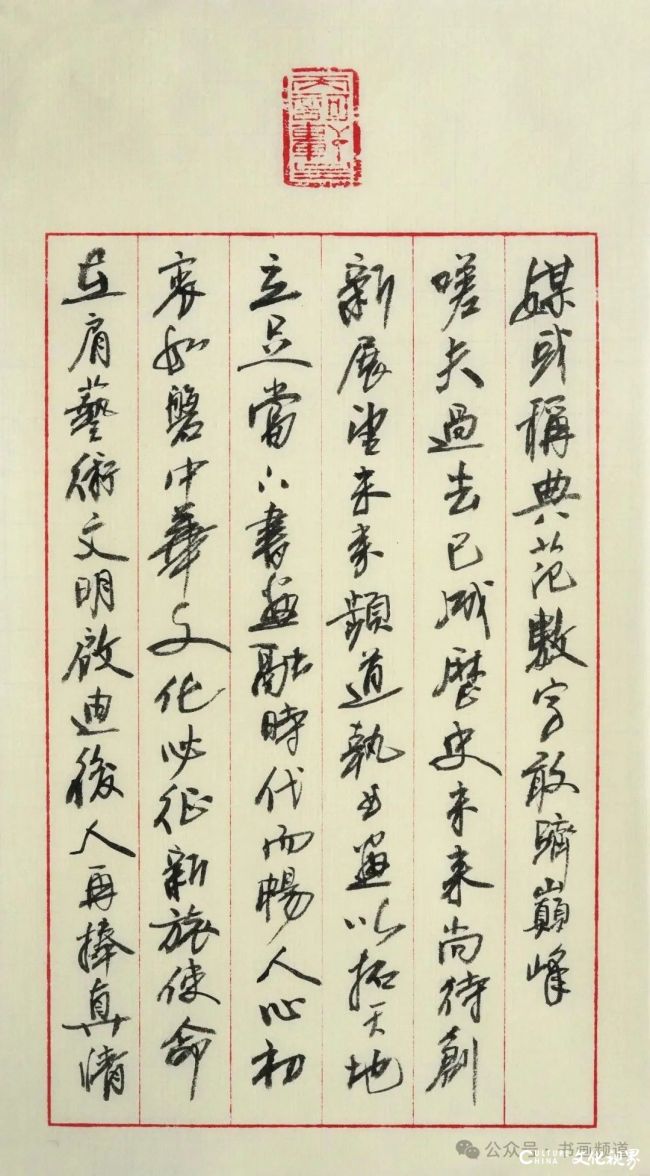 媒或稱典范數字敢躋巔峰
嗟夫過去已成歷史未來尚待創
新展望未來頻道執書畫以拓天地
立足當下書畫融時代而暢人心初
衷如磐中華文化必征新旅使命
在肩藝術文明啟迪後人再捧真情
公众号·书画频道
CULTURE CHINA 文化视界